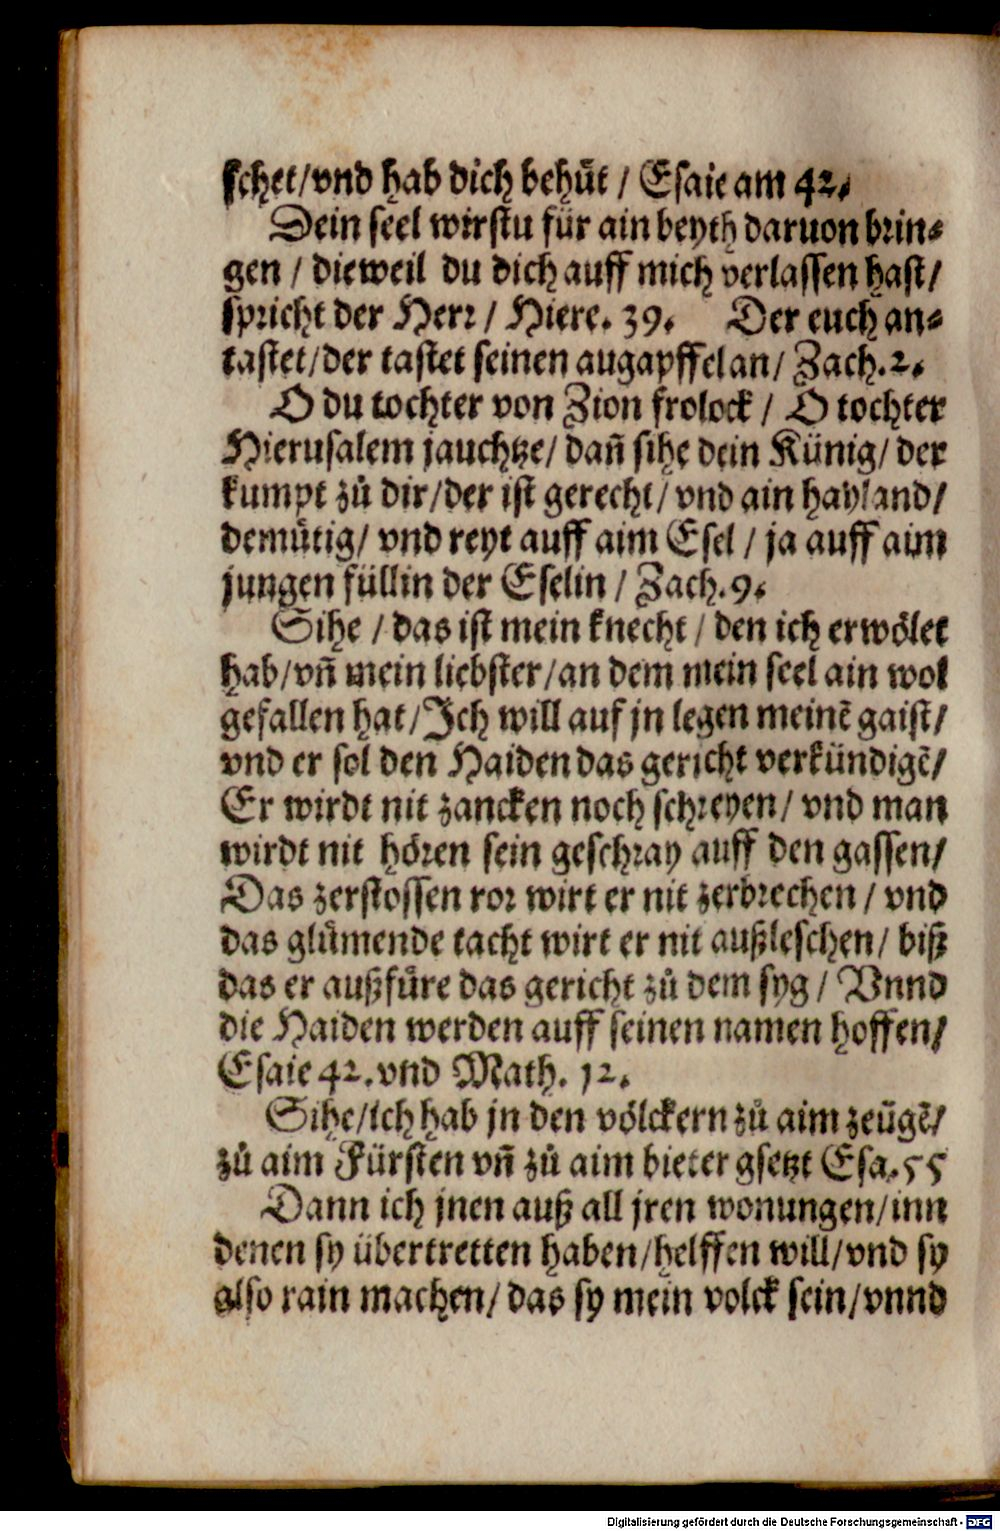 schet/vnd hab dich behuͤt / Esaie am 42.
Dein seel wirstu für ain beyth daruon brin⸗
gen / dieweil du dich auff mich verlassen hast/
spricht der Herr / Hiere. 39. Der euch an⸗
tastet/der tastet seinen augapffel an/ Zach.2.
O du tochter von Zion frolock / O tochter
Hierusalem jauchtze/ dañ sihe dein Künig/ der
kumpt zů dir/der ist gerecht/ vnd ain hayland/
demuͤtig/ vnd reyt auff aim Esel / ja auff aim
jungen füllin der Eselin / Zach.9.
Sihe / das ist mein knecht / den ich erwoͤlet
hab/vñ mein liebster/an dem mein seel ain wol
gefallen hat/Ich will auf jn legen meinẽ gaist/
vnd er sol den Haiden das gericht verkündigẽ/
Er wirdt nit zancken noch schreyen/ vnd man
wirdt nit hoͤren sein geschray auff den gassen/
Das zerstossen ror wirt er nit zerbrechen / vnd
das gluͤmende tacht wirt er nit außleschen/ biß
das er außfuͤre das gericht zů dem syg / Vnnd
die Haiden werden auff seinen namen hoffen/
Esaie 42.vnd Math. 12.
Sihe/ich hab jn den voͤlckern zů aim zeügẽ/
zů aim Fürsten vñ zů aim bieter gsetzt Esa.55
Dann ich jnen auß all jren wonungen/inn
denen sy übertretten haben/helffen will/vnd sy
also rain machen/ das sy mein volck sein/vnnd
Digitalisierung gefördert durch die Deutsche Forschungsgemeinschaft - DFG